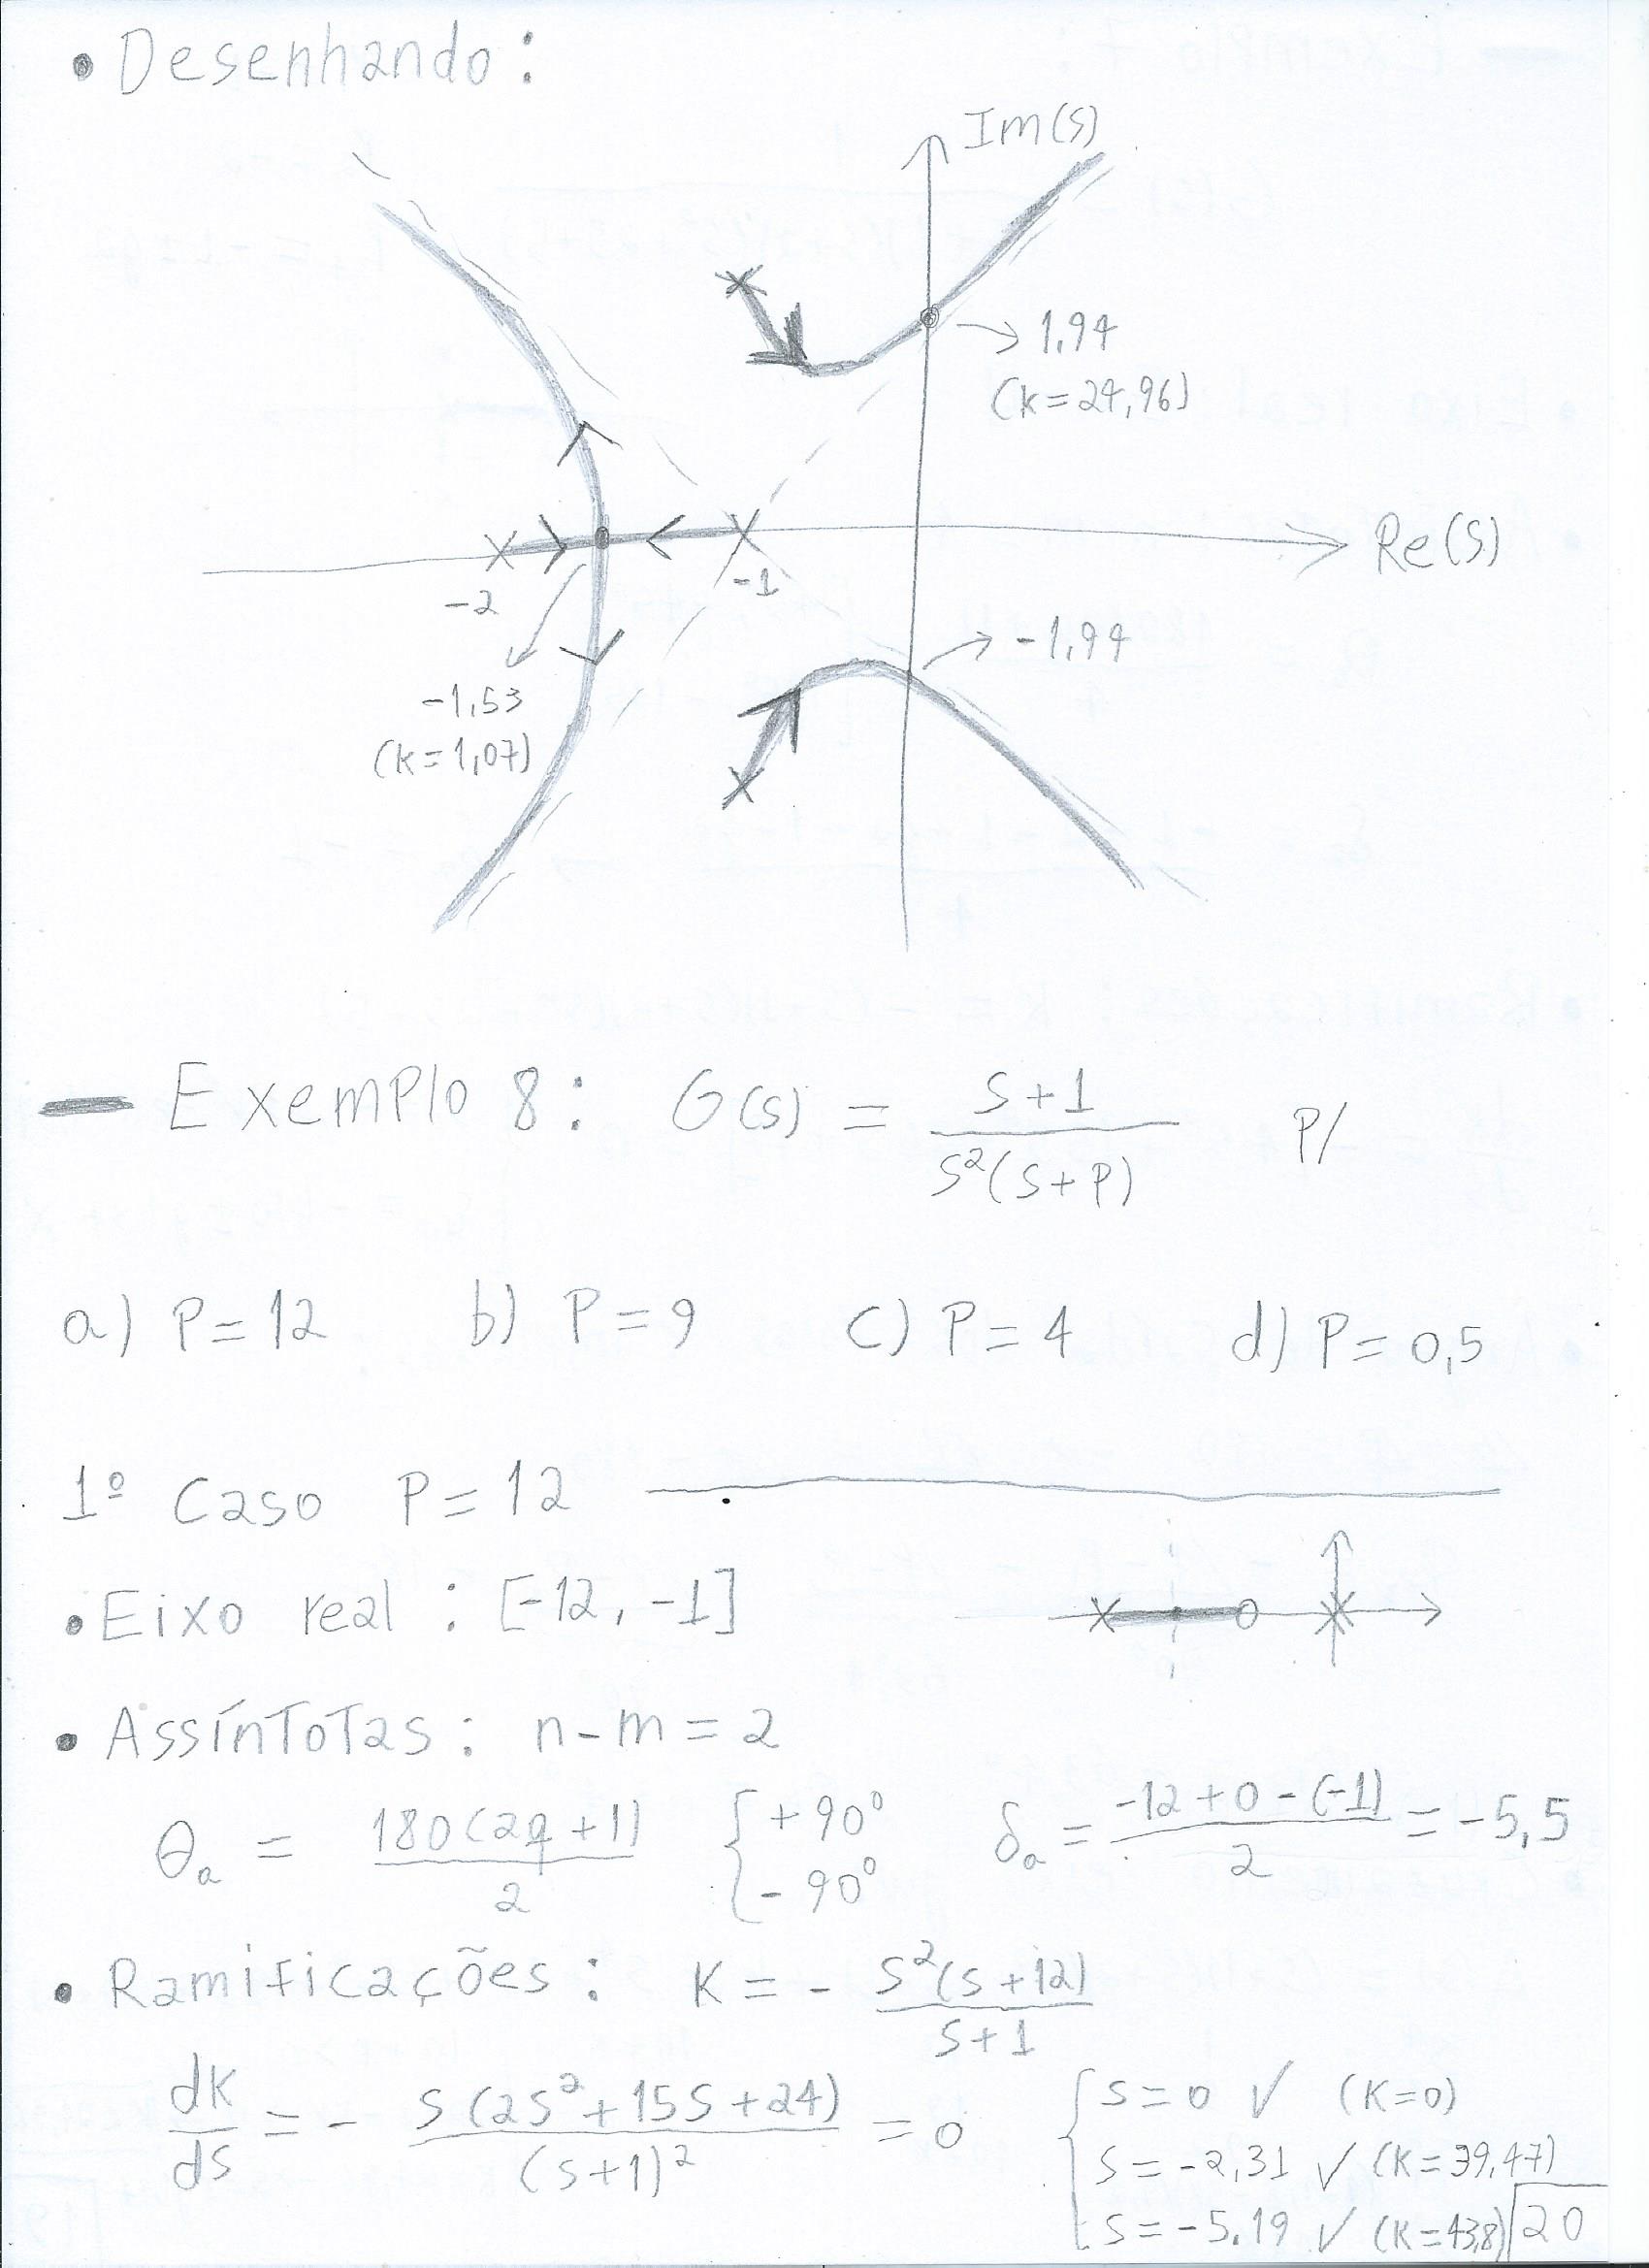 • Desenhando:
Im(s)
1,94
(k=24,96)
Re(s)
-2
-1
-1,94
-1,53
(k=1,07)
— Exemplo 8: G(s) = (s+1)/(s²(s+P)) P/
a) P=12 b) P=9 c) P=4 d) P=0,5
1º Caso P=12
• Eixo real : [-12, -1]
• Assíntotas: n-m=2
θa = 180(2q+1)/2 { +90° -90° δa = (-12+0-(-1))/2 = -5,5
• Ramificações: K = - s²(s+12)/(s+1)
dK/ds = - s(2s²+15s+24)/(s+1)² = 0 { s=0 ✓ (K=0)
s=-2,31 ✓ (K=39,47)
s=-5.19 ✓ (K=43,8)
20